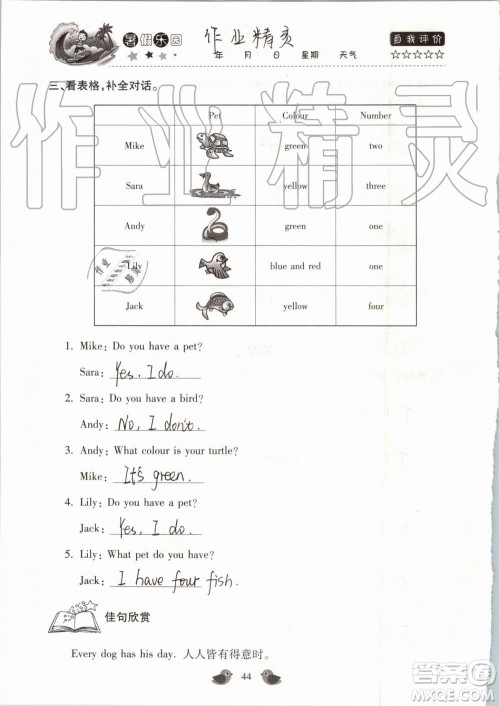 暑假乐园 作业精灵 自我评价
年 月 日 星期 天气 ☆☆☆☆☆
三、看表格,补全对话。
Pet Colour Number
Mike green two
Sara yellow three
Andy green one
Lily blue and red one
Jack yellow four
1. Mike: Do you have a pet?
Sara: Yes, I do.
2. Sara: Do you have a bird?
Andy: No, I don't.
3. Andy: What colour is your turtle?
Mike: It's green.
4. Lily: Do you have a pet?
Jack: Yes, I do.
5. Lily: What pet do you have?
Jack: I have four fish.
佳句欣赏
Every dog has his day. 人人皆有得意时。
44
作业精灵
作业精灵
答案圈
MXQE.COM